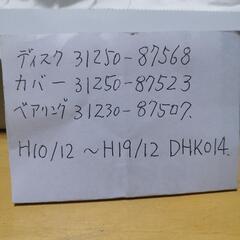 ディスク 31250-87568
カバー 31250-87523
ベアリング 31230-87507.
H10/12 ～H19/12 DHK014